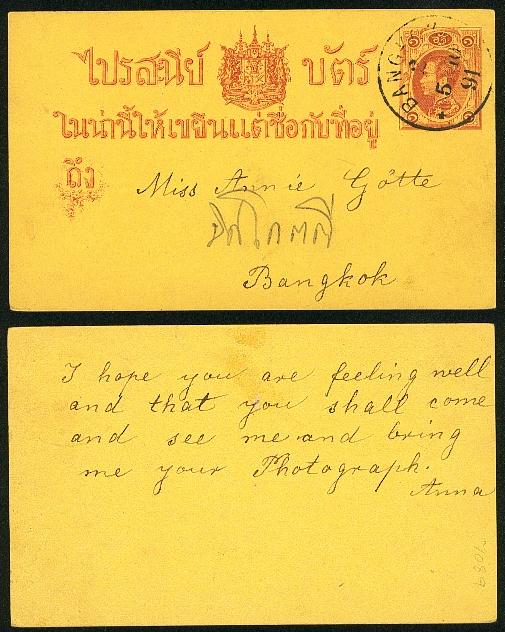 ไปรสนีย์ บัตร์
BANGKOK
5
91
ในน่านี้ให้เขียนแต่ชื่อกับที่อยู่
ถึง
Miss Annie Götte
Bangkok
I hope you are feeling well
and that you shall come
and see me and bring
me your Photograph.
Anna